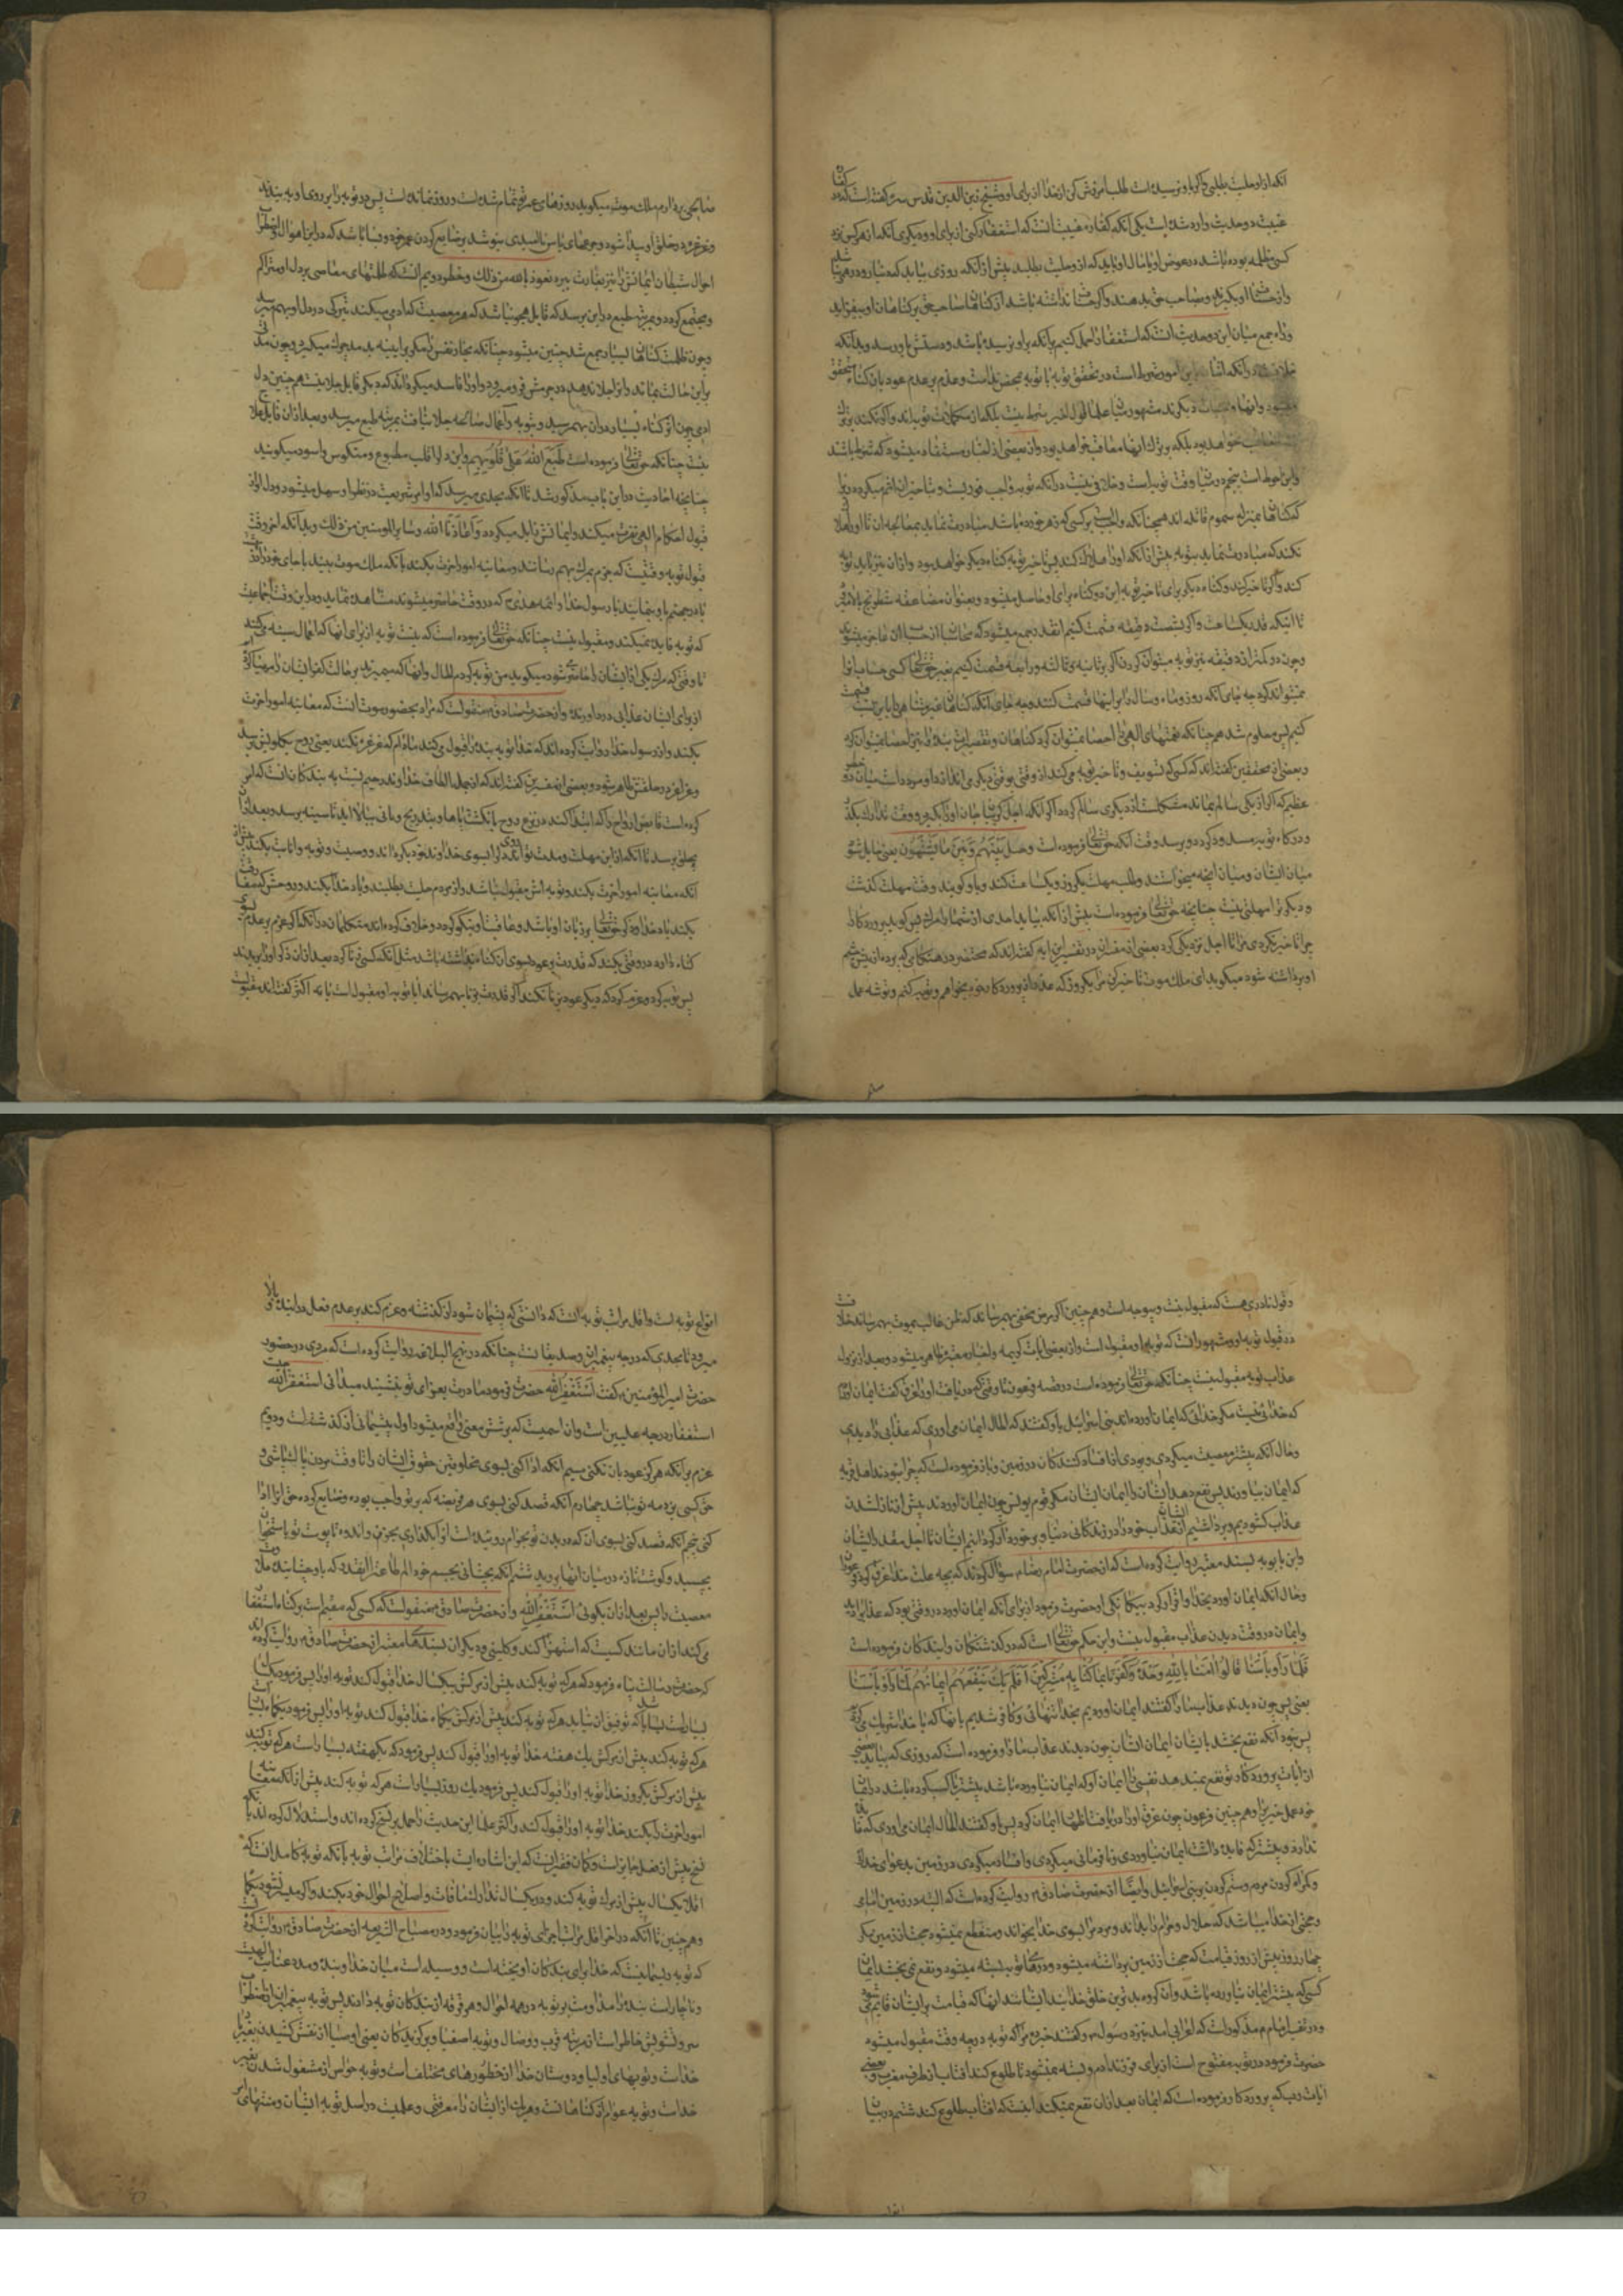 آنکه از او حلیت بطلبی و اگر باو نرسیده است طلب آمرزش کن از خدا از برای او و شیخ زین الدین قدس سره گفته است که در کفاره
غیبت دو حدیث وارد شده است یکی آنکه کفاره غیبت آنست که استغفار کنی از برای او و دیگری آنکه از هر کس نزد
کسی مظلمه بوده باشد در عوض او یا مال او باید که از او حلیت بطلبد پیش از آنکه روزی بیاید که
و از حسنات او بگیرند و بصاحب حق بدهند و اگر حسنات نداشته باشد از گناهان صاحب حق بر گناهان او بیفزاید
و راه جمع میان این دو حدیث آنست که استغفار را حمل کنیم بر آنکه باو نرسیده باشد و دستش باو نرسد و بدانکه
خلافی نیست در آنکه این امور شرط است در تحقق توبه
خواهد بود بلکه بترک آنها معاقب خواهد بود و از بعضی از اخبار مستفاد میشود که شرط باشند
و این احوط است پنجم در بیان وقت توبه است و خلافی نیست در آنکه توبه واجب فوریست و بتأخیر آن آثم میگردد زیرا
که گناهان بمنزله سموم قاتله اند همچنانکه واجبست بر کسی که زهر خورده باشد مبادرت نماید بمعالجه آن تا او را هلاک
نکند که مبادرت نماید بتوبه پیش از آنکه او را هلاک کند پس تأخیر توبه گناه دیگر خواهد بود و از آن نیز باید توبه
کند و اگر تأخیر کند و گناه دیگر برای تأخیر توبه این دو گناه برای او حاصل میشود و بعنوان مضاعفه شطرنج بالا میرود
تا اینکه قدر یکساعت و اگر بشصت دقیقه قسمت کنیم آنقدر جمع میشود که محاسبان از حساب آن عاجز میشوند
و چون در کمتر از دقیقه نیز توبه میتوان کرد آن را اگر بثانیه و ثالثه و رابعه قسمت کنیم بغیر حقتعالی کسی حساب آنرا
نمیتواند کرد چه جای آنکه روز و ماه و سال را بر اینها قسمت کنند و چه جای آنکه گناهان غیر متناهی را باین نسبت قسمت
کنیم پس معلوم شد همچنانکه نعمتهای الهی را احصا نمیتوان کرد گناهان و تقصیرات بنده را نیز احصا نمیتوان کرد
و بعضی از محققین گفته اند که کسی که تسویف و تأخیر توبه می کند از وقتی بوقتی دیگر می اندازد او مردد است میان دو خطر
عظیم که اگر از یکی سالم بماند مشکلست از دیگری سالم گردد اول آنکه اجل گریبان جان او را بگیرد و وقت تدارک بگذرد
و در گاه توبه رسد و وقت آنکه حقتعالی فرموده است وَحِیلَ بَیْنَهُمْ وَبَیْنَ مَا یَشْتَهُونَ یعنی حایل شود
میان ایشان و میان آنچه میخواستند و طلب مهلت یکروز و یکساعت کند و باو گویند وقت مهلت گذشت
و دیگر ترا مهلتی نیست چنانچه حقتعالی فرموده است پیش از آنکه بیاید احدی از شما را مرگ پس گوید پروردگارا
چرا تأخیر نکردی مرا تا اجل نزدیکی گفته بعضی از مفسران در تفسیر این آیه گفته اند که محتضر در هنگامی که پرده از پیش چشم
او برداشته شود میگوید ای ملک موت تأخیر کن مرا یکروز که عذر از پروردگار خود بخواهم و توبه کنم و توشه عمل
صالحی بردارم ملک موت میگوید روزهای عمر تو تمام شده است و روز نمانده است پس در توبه را بر روی او به بندند
و غرغره در حلق او پیدا شود و جرعهای یاس و ناامیدی بنوشد بر ضایع کردن عمر خود و بسا باشد که در این اهوال و اضطراب
احوال شیطان ایمانش را نیز بغارت ببرد نعوذ بالله من ذلک و خطر دویم آنست که ظلمتهای معاصی بر دل او متراکم
و مجتمع گردد و بمرتبه طبع و رین برسد که قابل محو نباشد که هر معصیت که آدمی میکند تیرگی در دل او بهم میرسد
و چون ظلمت گناهان بسیار جمع شد چنین میشود چنانکه بخار نفس آدمی مکرر بر آینه بدمد چرک میگیرد و چون مدتی
بر این حالت بماند و آنرا جلا ندهد در جرمش فرو میرود و او را فاسد میگرداند که دیگر قابل جلا نیست همچنین دل
آدمی چون از گناه بسیار در آن بهم رسید و بتوبه و اعمال صالحه جلا نیافت بمرتبه طبع میرسد و بعد از آن قابل جلا
نیست چنانکه حقتعالی فرموده است طَبَعَ اللّٰهُ عَلیٰ قُلُوبِهِمْ و این دل را قلب مطبوع و منکوس و اسود میگویند
چنانچه احادیث در این باب مذکور شد تا آنکه بحدی میرسد که اوامر شریعت در نظر او سهل میشود و دل او از
قبول احکام الهی نفرت میکند و ایمانش زایل میگردد وَاَعَاذَنَا اللّٰه وسایر المؤمنین من ذلک و بدانکه آخر وقت
قبول توبه وقتیست که جزم بمرگ بهم رسانند و معاینه امور آخرت بکنند یا آنکه ملک موت بیند یا جای خود را در
یا در جهنم باو بنمایند یا رسول خدا و ائمه هدی که در وقت حاضر میشوند مشاهده نماید و در این وقت اجماعیست
که توبه فایده نمیکند و مقبول نیست چنانکه حقتعالی فرموده است که نیست توبه از برای آنها که اعمال سیئه میکنند
تا وقتی که مرگ یکی از ایشان را حاضر شود میگوید من توبه کردم الحال و آنها که میمیرند بر حالت کفر ایشان را مهیا کرده ایم
از برای ایشان عذابی دردآورنده و از حضرت صادق منقولست که مراد بحضور موت آنست که معاینه امور آخرت
بکنند و از رسول خدا روایت کرده اند که خدا توبه بنده را قبول میکند مادام که غرغره نکند یعنی روح بگلویش برسد
و غرغره در حلقش ظاهر شود و بعضی از مفسرین گفته اند که از جمله الطاف خداوند رحیم نسبت به بندگان آنست که امر
کرده است قابض ارواح را که ابتدا کند در نزع روح بانگشت پاها و بتدریج و تأنی ببالا آید تا سینه برسد و بعد از آن
بحلق برسد تا آنکه در این مهلت و مدت توانند روی دل را بسوی خداوند خود بگردانند و وصیت و توبه و انابت بکنند پیش از
آنکه معاینه امور آخرت بکنند و توبه اش مقبول نباشد و از مردم حلیت بطلبند و یاد خدا بکنند و روحش
بکند یاد خدا و ذکر حقتعالی بر زبان او باشد و عاقبت او نیکو گردد و خلاف کرده اند متکلمان در آنکه اگر عزم بر عدم
گناه دارد در وقتی بکند که قدرت بر عود بسوی آن گناه نداشته باشد مثل آنکه کسی زنا کرده بعد از آن ذکر او را بریدند
پس توبه کرد و عزم کرد که دیگر عود بزنا نکند اگر قدرت بر زنا بهم رساند آیا توبه او مقبول است یا نه اکثر گفته اند مقبولست
و قول نادری هست که مقبول نیست و بیوجه است و همچنین اگر مرض مخوفی بهم رساند که ظن غالب بموت بهم رساند خلافست
در قبول توبه او و مشهور آنست که توبه او مقبول است و از بعضی آیات کریمه و اخبار معتبره ظاهر میشود و بعد از نزول
عذاب توبه مقبول نیست چنانکه حقتعالی فرموده است در قصه فرعون تا وقتی که دریافت او را غرق گفت ایمان آوردم
که خدائی نیست مگر خدائی که ایمان آورده اند بنی اسرائیل باو گفتند که الحال ایمان می آوری که عذاب را دیدی
و حال آنکه پیشتر معصیت میکردی و بودی از افساد کنندگان در زمین و باز فرموده است که چرا نبودند اهل قریه
که ایمان بیاورند پس نفع دهد ایشان را ایمان ایشان مگر قوم یونس چون ایمان آوردند پیش از نازل شدن
عذاب گشودیم و برداشتیم از ایشان عذاب خود را در زندگانی دنیا و برخوردار گردانیم ایشان را تا اجل مقدر ایشان
و ابن بابویه بسند معتبر روایت کرده است که از حضرت امام رضا سؤال کردند که بچه علت خدا غرق کرد فرعون را
و حال آنکه ایمان آورد بخدا و اقرار کرد بیگانگی او حضرت فرمود از برای آنکه ایمان آورد در وقتی بود که عذاب را دید
و ایمان در وقت دیدن عذاب مقبول نیست و این حکم حقتعالی است که در گذشتگان و آیندگان فرموده است
فَلَمَّا رَأَوْا بَأْسَنَا قَالُوا آمَنَّا بِاللّٰهِ وَحْدَهُ وَکَفَرْنَا بِمَا کُنَّا بِهِ مُشْرِکِینَ فَلَمْ یَکُ یَنْفَعُهُمْ إِیمَانُهُمْ لَمَّا رَأَوْا بَأْسَنَا
یعنی پس چون دیدند عذاب ما را گفتند ایمان آوردیم بخدا بتنهائی و کافر شدیم بآنها که با خدا شریک میکردیم
پس نبود آنکه نفع بخشد بایشان ایمان ایشان چون دیدند عذاب ما را و فرموده است که روزی که بیاید بعضی
از آیات پروردگار تو نفع نمیدهد نفسی را ایمان او که ایمان نیاورده باشد پیشتر یا کسب کرده باشد در ایمان
خود عمل خیر را و همچنین فرعون چون غرق او را دریافت اظهار ایمان کرد پس باو گفتند الحال ایمان می آوری که فایده
ندارد و پیشتر که فایده داشت ایمان نیاوردی و نافرمانی میکردی و افساد میکردی در زمین بدعوای خدائی
و گمراه کردن مردم و ستم کردن بر بنی اسرائیل و ایضاً از حضرت صادق روایت کرده است که البته در زمین امامی
و حجتی از خدا میباشد که حلال و حرام را بداند و مردم را بسوی خدا بخواند و منقطع نمیشود حجت از زمین مگر
چهل روز پیش از روز قیامت که حجت از زمین برداشته میشود و در توبه بسته میشود و نفع نمی بخشد ایمان
کسی که پیشتر ایمان نیاورده باشد و آن گروه بدترین خلق خدایند ایشانند آنها که قیامت بر ایشان قایم میشود
و در تفسیر امام مذکور است که اعرابی آمد بنزد رسول و گفتند خبر ده مرا که توبه در چه وقت مقبول میشود
حضرت فرمود در توبه مفتوح است از برای فرزند آدم و بسته نمیشود تا طلوع کند آفتاب از طرف مغرب و بعضی
آیات رب که پروردگار فرموده است که ایمان بعد از آن نفع نمیکند اینست که آفتاب طلوع کند ششم در بیان
انواع توبه است و اقل مراتب توبه آنست که دانستی که پشیمان شود از گذشته و عزم کند بر عدم فعل در آینده و بالا
میرود تا بحدی که درجه پیغمبران و صدیقانست چنانکه در نهج البلاغه روایت کرده است که مردی در حضور
حضرت امیر المؤمنین گفت اَسْتَغْفِرُ اللّٰهَ حضرت فرمود مادرت بعزای تو بنشیند میدانی استغفر الله چیست
استغفار درجه علیین است و آن اسمیست که بر شش معنی واقع میشود اول پشیمانی از گذشته است و دویم
عزم بر آنکه هرگز عود بآن نکنی سیم آنکه ادا کنی بسوی مخلوقین حقوق ایشان را تا وقت مردن پاک باشی و
حق کسی بر ذمه تو نباشد چهارم آنکه قصد کنی بسوی هر فریضه که بر تو واجب بوده و ضایع کرده حق آنرا ادا
کنی پنجم آنکه قصد کنی بسوی آن که در بدن تو بحرام روئیده است آنرا بگدازی بحزن و اندوه تا پوست تو باستخوان
بچسبد و گوشت تازه در میان آنها بروید ششم آنکه بچشانی بجسم خود الم طاعت را آنقدر که باو چشانیده حلاوت
معصیت را پس بعد از آن بگوئی اَسْتَغْفِرُ اللّٰهَ و از حضرت صادق منقولست که کسی که مقیم است بر گناه و استغفار
می کند از آن مانند کسیست که استهزا کند و کلینی و دیگران بسندهای معتبر از حضرت صادق روایت کرده اند
که حضرت رسالت پناه فرمود که هر که توبه کند پیش از مرگش بیکسال خدا قبول کند توبه او را پس فرمود یکسال
بسیار است هر که توبه کند پیش از مرگش بیکماه خدا قبول کند توبه او را پس فرمود یکماه بسیار است
هر که توبه کند پیش از مرگش یک هفته خدا توبه او را قبول کند پس فرمود که یکهفته بسیار است هر که توبه کند
پیش از مرگش یکروز خدا توبه او را قبول کند پس فرمود یک روز بسیار است هر که توبه کند پیش از آنکه معاینه
امور آخرت را بکند خدا توبه او را قبول کند و اکثر علما این حدیث را حمل بر نسخ کرده اند و استدلال کرده اند بآنکه
نسخ پیش از فعل جایز است و گمان فقیر آنست که این اشاره است باختلاف مراتب توبه بآنکه توبه کامله آنست که
اقلا یکسال پیش از مرگ توبه کند و در یکسال تدارک مافات و اصلاح احوال خود بکند و اگر میسر نشود یکماه
و همچنین تا آنکه در آخر اقل مراتب اجزای توبه را بیان فرمود و در مصباح الشریعه از حضرت صادق روایت کرده
که توبه ریسمانیست که خدا برای بندگان آویخته است و وسیله است میان خدا و بنده و مدد عنایت الهیست
و ناچار است بنده را مداومت بر توبه در همه احوال و هر فرقه از بندگان توبه دارند پس توبه پیغمبران از اضطراب
سر و تشویش خاطر است از مرتبه قرب و وصال و توبه اصفیا و برگزیدگان یعنی اوصیا از نفس کشیدن بغیر یاد
خداست و توبهای اولیا و دوستان خدا از خطورهای مختلف است و توبه خواص از مشغول شدن بغیر
خداست و توبه عوام از گناهانست و هر یک از ایشان را معرفتی و علمیست در اصل توبه ایشان و منتهای امر